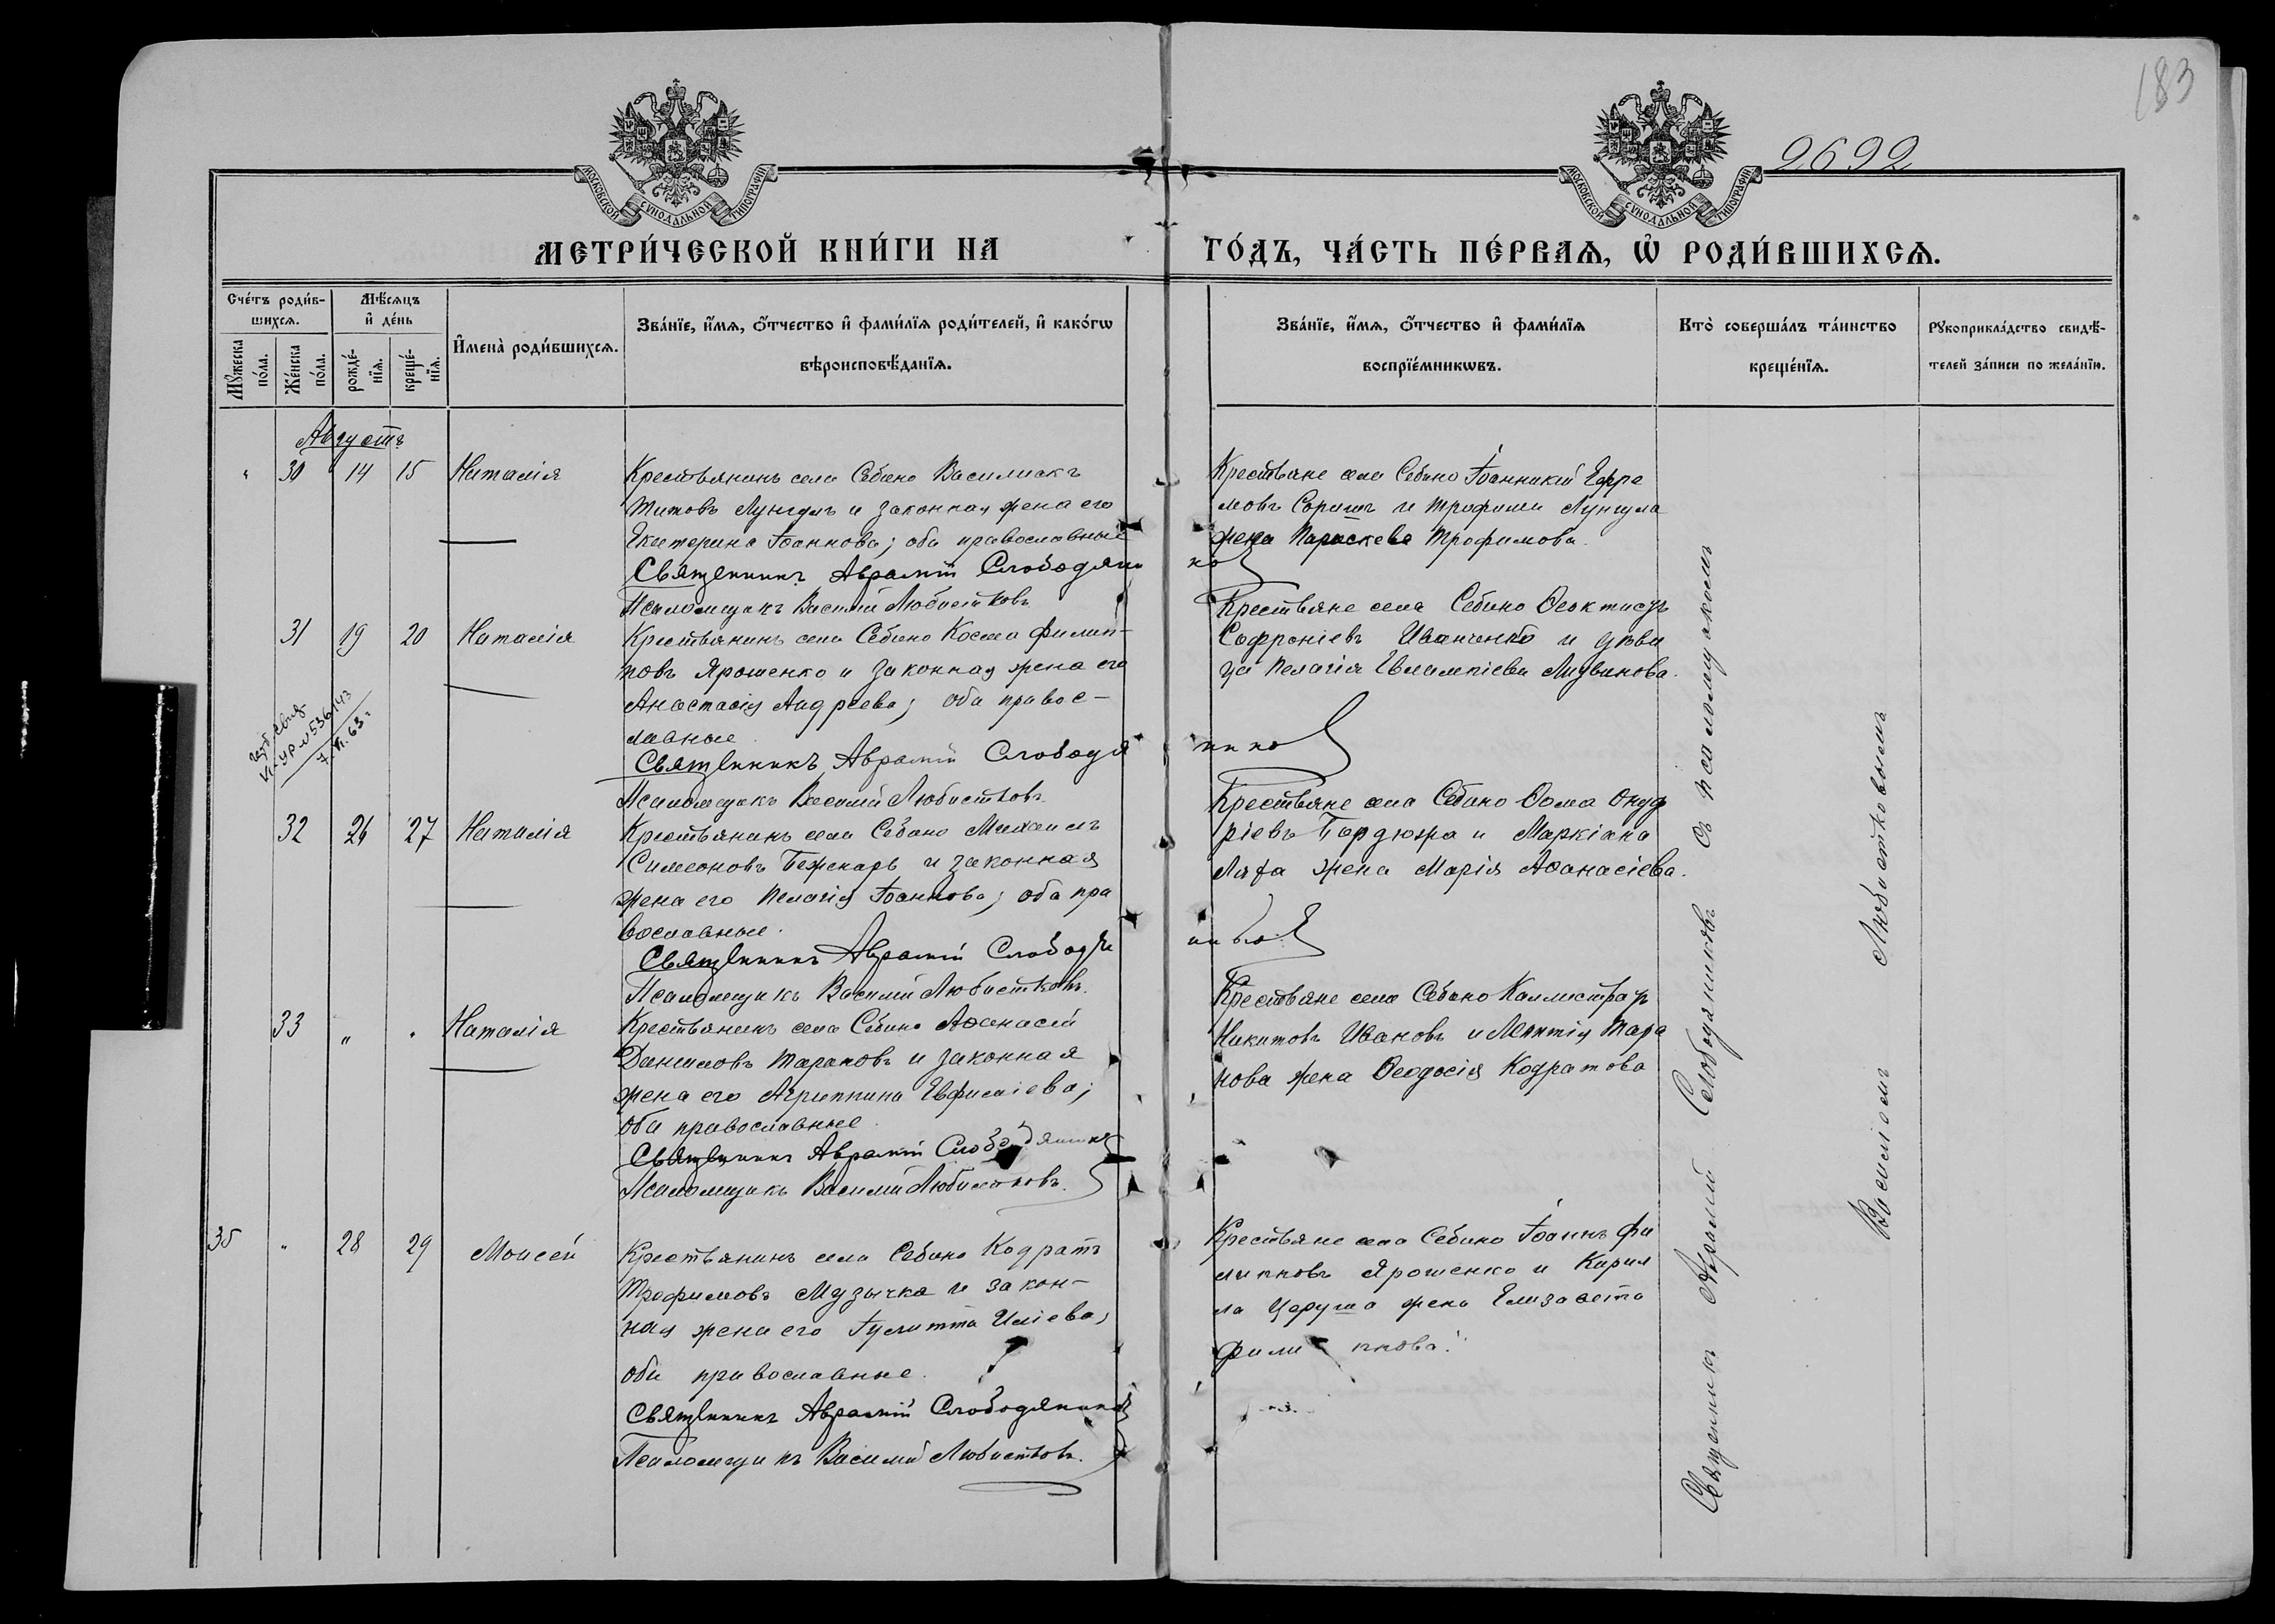 183
2692
МОСКОВСКОЙ СѴНОДАЛЬНОЙ ТИПОГРАФІИ
МОСКОВСКОЙ СѴНОДАЛЬНОЙ ТИПОГРАФІИ
МЕТРИ́ЧЕСКОЙ КНИ́ГИ НА
ГО́ДЪ, ЧА́СТЬ ПЕ́РВАѦ, Ѡ҆ РОДИ́ВШИХСѦ.
Сче́тъ роди́в-
шихсѧ.
Мѣ́сѧцъ
и҆ де́нь
Мꙋ́жеска
по́ла.
Же́нска
по́ла.
рожде́-
нїѧ.
креще́-
нїѧ.
И҆мена̀ роди́вшихсѧ.
Зва́нїе, и҆́мѧ, ѻ҆́тчество и҆ фами́лїѧ роди́телей, и҆ како́гѡ
вѣроисповѣ́данїѧ.
Зва́нїе, и҆́мѧ, ѻ҆́тчество и҆ фами́лїѧ
воспрїе́мникѡвъ.
Кто̀ соверша́лъ та́инство
креще́нїѧ.
Рꙋкоприкла́дство свидѣ́-
телей за́писи по жела́нїю.
Августъ
" 30 14 15 Наталія
Крестьянинъ села Себино Василискъ
Титовъ Лунгулъ и законная жена его
Екатерина Іоаннова; оба православные
Священникъ Аврамій Слободяни
ко
Псаломщикъ Василій Любистковъ
Крестьяне села Себино Іоанникій Ефре
мовъ Соришъ и Трофима Лунгула
жена Параскева Трофимова.
31 19 20 Наталія
Крестьянинъ села Себино Косма Филип-
повъ Ярошенко и законная жена его
Анастасія Андреева; оба правос-
лавные
Священникъ Аврамій Слободя
нико
Псаломщикъ Василій Любистковъ
Крестьяне села Себино Ѳеоктистъ
Софроніевъ Иванченко и дѣви
ца Пелагія Евлампіева Литвинова.
536143
7.VI.63 г
32 26 27 Наталія
Крестьянинъ села Себино Михаилъ
Симеоновъ Бежекарь и законная
жена его Пелагія Іоаннова; оба пра
вославные.
Священникъ Аврамій Слободя
Псаломщикъ Василій Любистковъ.
Крестьяне села Себино Ѳома Онуф
ріевъ Бардюжа и Маркіана
жена Марія Аѳанасіева.
33 " " Наталія
Крестьянинъ села Себино Аѳанасій
Даниловъ Тарановъ и законная
жена его Агриппина Евфиміева;
оба православные.
Священникъ Аврамій Слободянико
Псаломщикъ Василій Любистковъ.
Крестьяне села Себино Каллистратъ
Никитовъ Ивановъ и Леонтія Тара
нова жена Ѳеодосія Кодратова
35 " 28 29 Моисей
Крестьянинъ села Себино Кодратъ
Трофимовъ Музычка и закон-
ная жена его Іулитта Иліева;
оба православные.
Священникъ Аврамій Слободянико
Псаломщикъ Василій Любистковъ.
Крестьяне села Себино Іоаннъ Фи
липповъ Ярошенко и Кирил
ла Царуша жена Елизавета
Филиппова.
Священникъ Аврамій Слободяниковъ съ псаломщикомъ
Василіемъ Любистковымъ